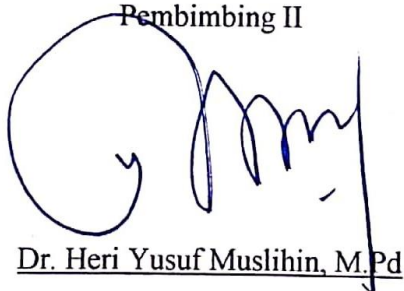 Pembimbing II
Dr. Heri Yusuf Muslihin, M.Pd